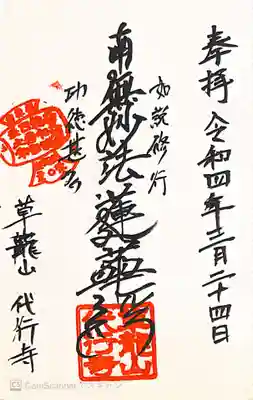 奉拝 令和四年十二月二十四日
如説修行
南無妙法蓮華経
功徳甚多
草龍山 代行寺
CamScanner でスキャン